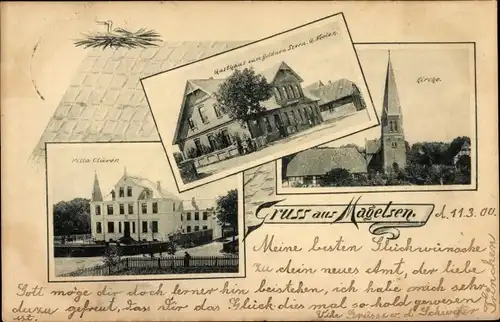 Gasthaus zum goldnen Stern, G. Meilen
Kirche.
Villa Clüver
Gruss aus Magelsen.
d. 11.3.00.
Meine besten Glückwünsche
zu dein neues Amt, der liebe
Gott möge dir doch ferner hin beistehen, ich habe mich sehr
dazu gefreut, dass Dir das Glück dies mal so hold gewesen
ist. Viele Grüsse v. d. Schwester